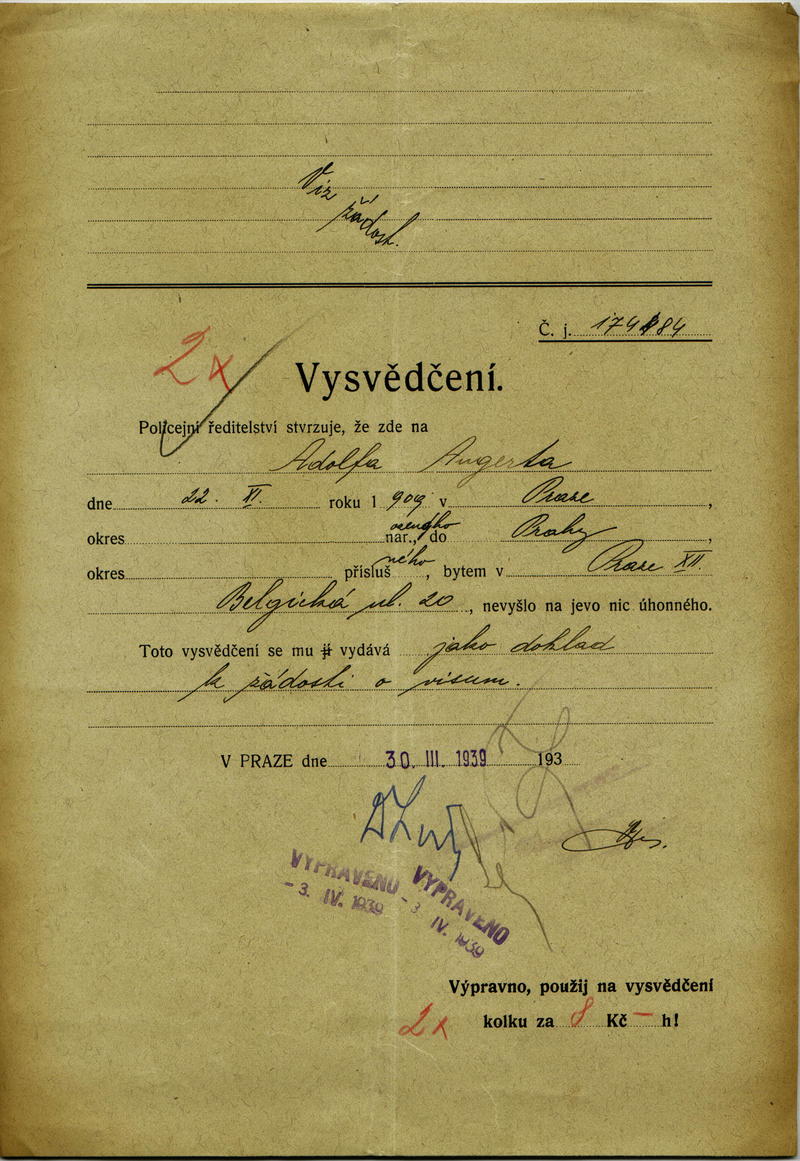 Viz
žádost.
Č. j. 174184
2x
Vysvědčení.
Policejní ředitelství stvrzuje, že zde na
Adolfa Angerta
dne 22. XI. roku 1909 v Praze,
okres nar. ozeného, do Prahy,
okres přísluš ného, bytem v Praze XII.
Belgická ul. 20, nevyšlo na jevo nic úhonného.
Toto vysvědčení se mu jí vydává jako doklad
k žádosti o visum.
V PRAZE dne 30. III. 1939 193
VYPRAVENO VYPRAVENO
-3. IV. 1939 -3 IV. 1939
Výpravno, použij na vysvědčení
2x kolku za 8 Kč — h!